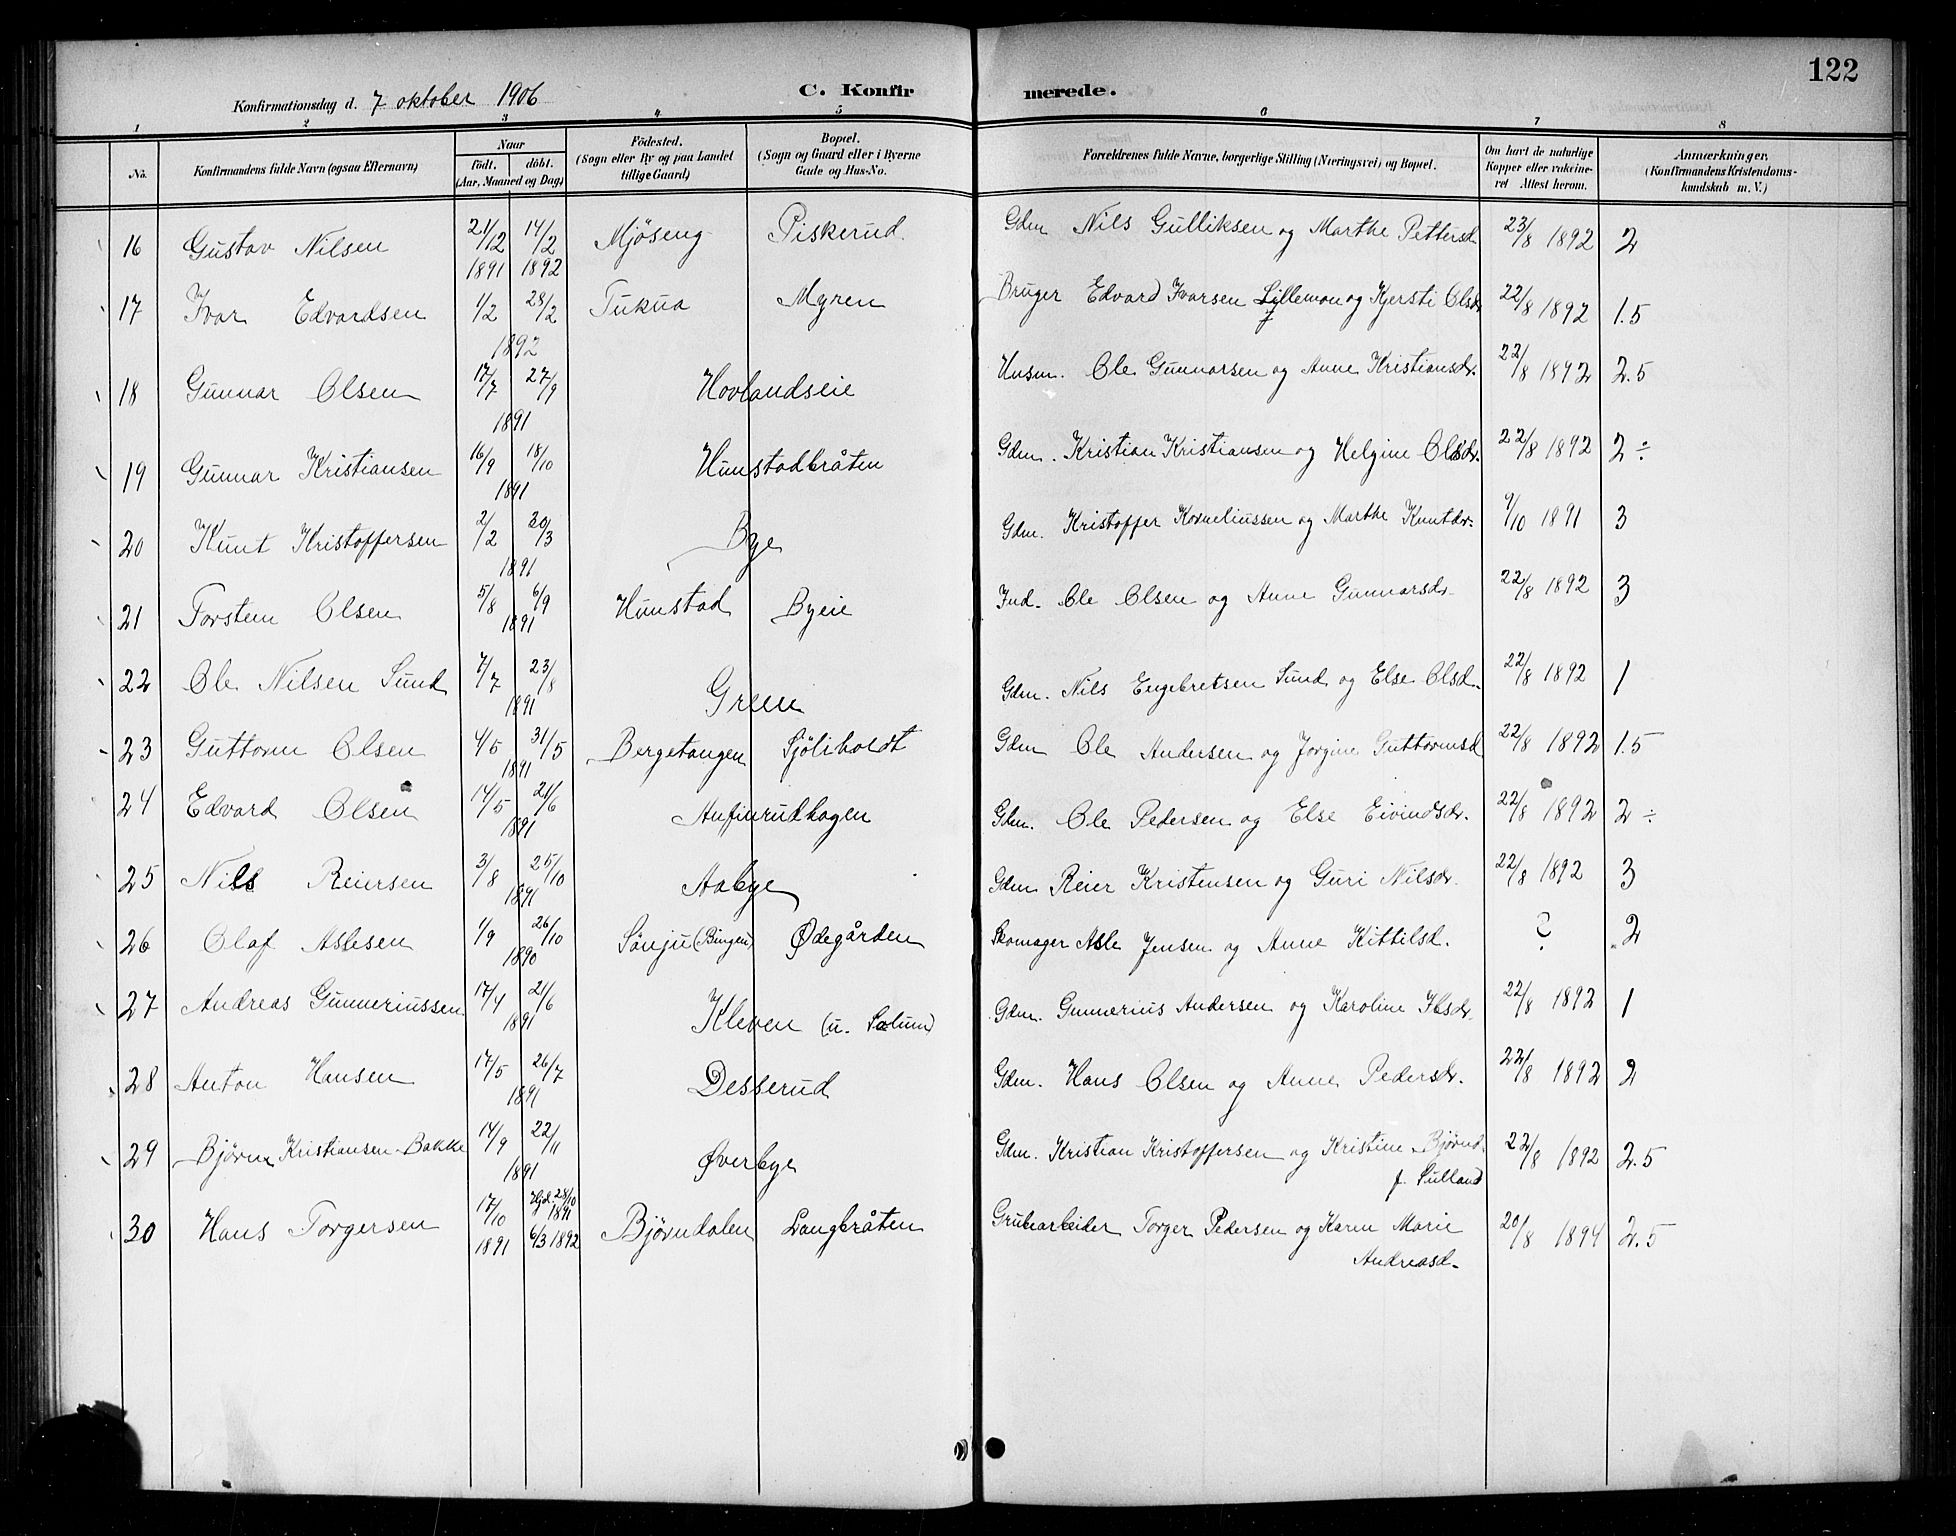 122
Konfirmationsdag d. 7 oktober 1906
C. Konfirmerede.
1 2 3 4 5 6 7 8
No. Konfirmandens fulde Navn (ogsaa Efternavn) Naar født. døbt. (Aar, Maaned og Dag) Fødested. (Sogn eller By og paa Landet tillige Gaard) Bopæl. (Sogn og Gaard eller i Byerne Gade og Hus-No. Forældrenes fulde Navne, borgerlige Stilling (Næringsvei) og Bopæl. Om havt de naturlige Kopper eller vakcineret Attest herom. Anmærkninger. (Konfirmandens Kristendomskundskab m. V.)
16 Gustav Nilsen 21/12 1891 14/2 1892 Mjøseng Piskerud Gdm Nils Gulliksen og Marthe Pettersd. 23/8 1892 2
17 Ivar Edvardsen 1/2 28/2 1892 Tukua Myren Bruger Edvard Ivarsen Lyllemon og Kjersti Olsdr 22/8 1892 1.5
18 Gunnar Olsen 17/7 27/9 1891 Hovlandseie Husm. Ole Gunnarsen og Anne Kristiansdr. 22/8 1892 2.5
19 Gunnar Kristiansen 16/9 18/10 1891 Hunstadbråten Gdm. Kristian Kristiansen og Helgine Olsdr. 22/8 1892 2 ÷
20 Knut Kristoffersen 2/2 30/3 1891 Bye Gdm. Kristoffer Korneliussen og Marthe Knutdr. 9/10 1891 3
21 Torsten Olsen 5/8 6/9 1891 Hunstad Byeie Ind. Ole Olsen og Anne Gunnarsdr. 22/8 1892 3
22 Ole Nilsen Sund 7/7 23/8 1891 Green Gdm. Nils Engebretsen Sund og Else Olsd. 22/8 1892 1
23 Guttorm Olsen 4/5 31/5 1891 Bergetangen Sjøliholdt Gdm Ole Andersen og Jorgine Guttormsd 22/8 1892 1.5
24 Edvard Olsen 14/5 21/6 1891 Anfinrudhagen Gdm. Ole Pedersen og Else Eivindsdr. 22/8 1892 2 ÷
25 Nils Reiersen 3/8 25/10 1891 Aabye Gdm Reier Kristensen og Guri Nilsdr. 22/8 1892 3
26 Olaf Aslesen 1/9 26/10 1890 Sønju (Bingen) Ødegården Skomager Asle Jensen og Anne Kittilsd. ? 2
27 Andreas Gunneriussen 17/4 21/6 1891 Kleven (u. Solum) Gdm. Gunnerius Andersen og Karoline 22/8 1892 1
28 Anton Hansen 17/5 26/7 1891 Desserud Gdm. Hans Olsen og Anne Pedersdr. 22/8 1892 2
29 Bjørn Kristiansen Bakke 14/9 22/11 1891 Øverbye Gdm. Kristian Kristoffersen og Kristine Bjørnd. f. Sulland 22/8 1892 2.5
30 Hans Torgersen 17/10 1891 Hjd. 28/10 1891 6/3 1892 Bjørndalen Langbråten Grubearbeider Torger Pedersen og Karen Marie Andreasd. 20/8 1894 2.5